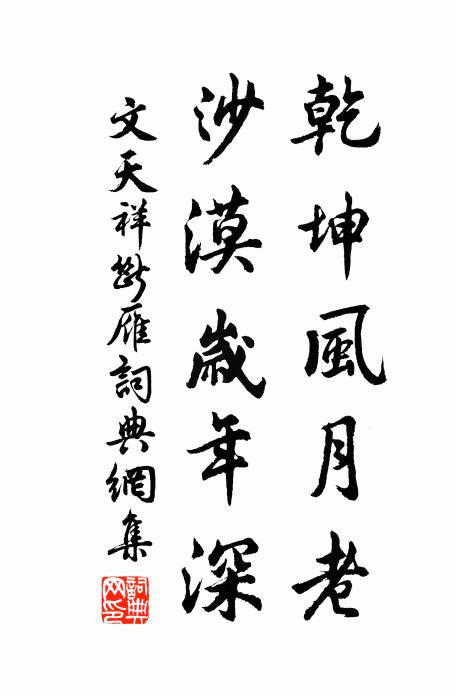 乾坤風月老
沙漠歲年深
文天祥斷雁詞典網集
詞典網印